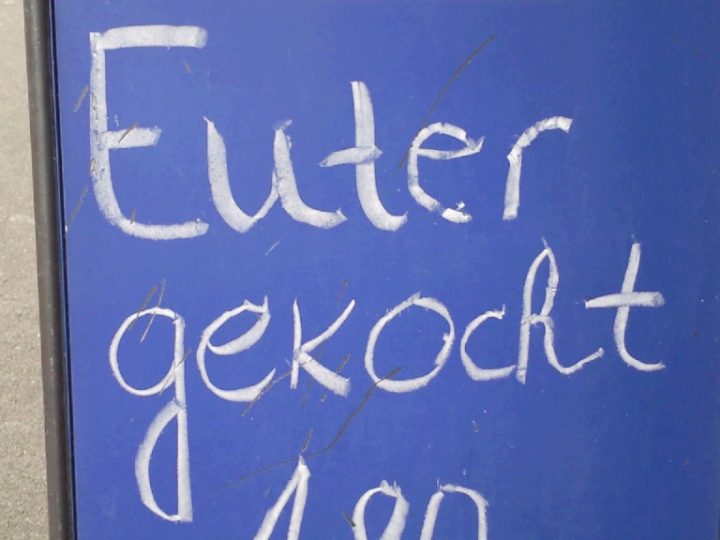 Euter
gekocht
180